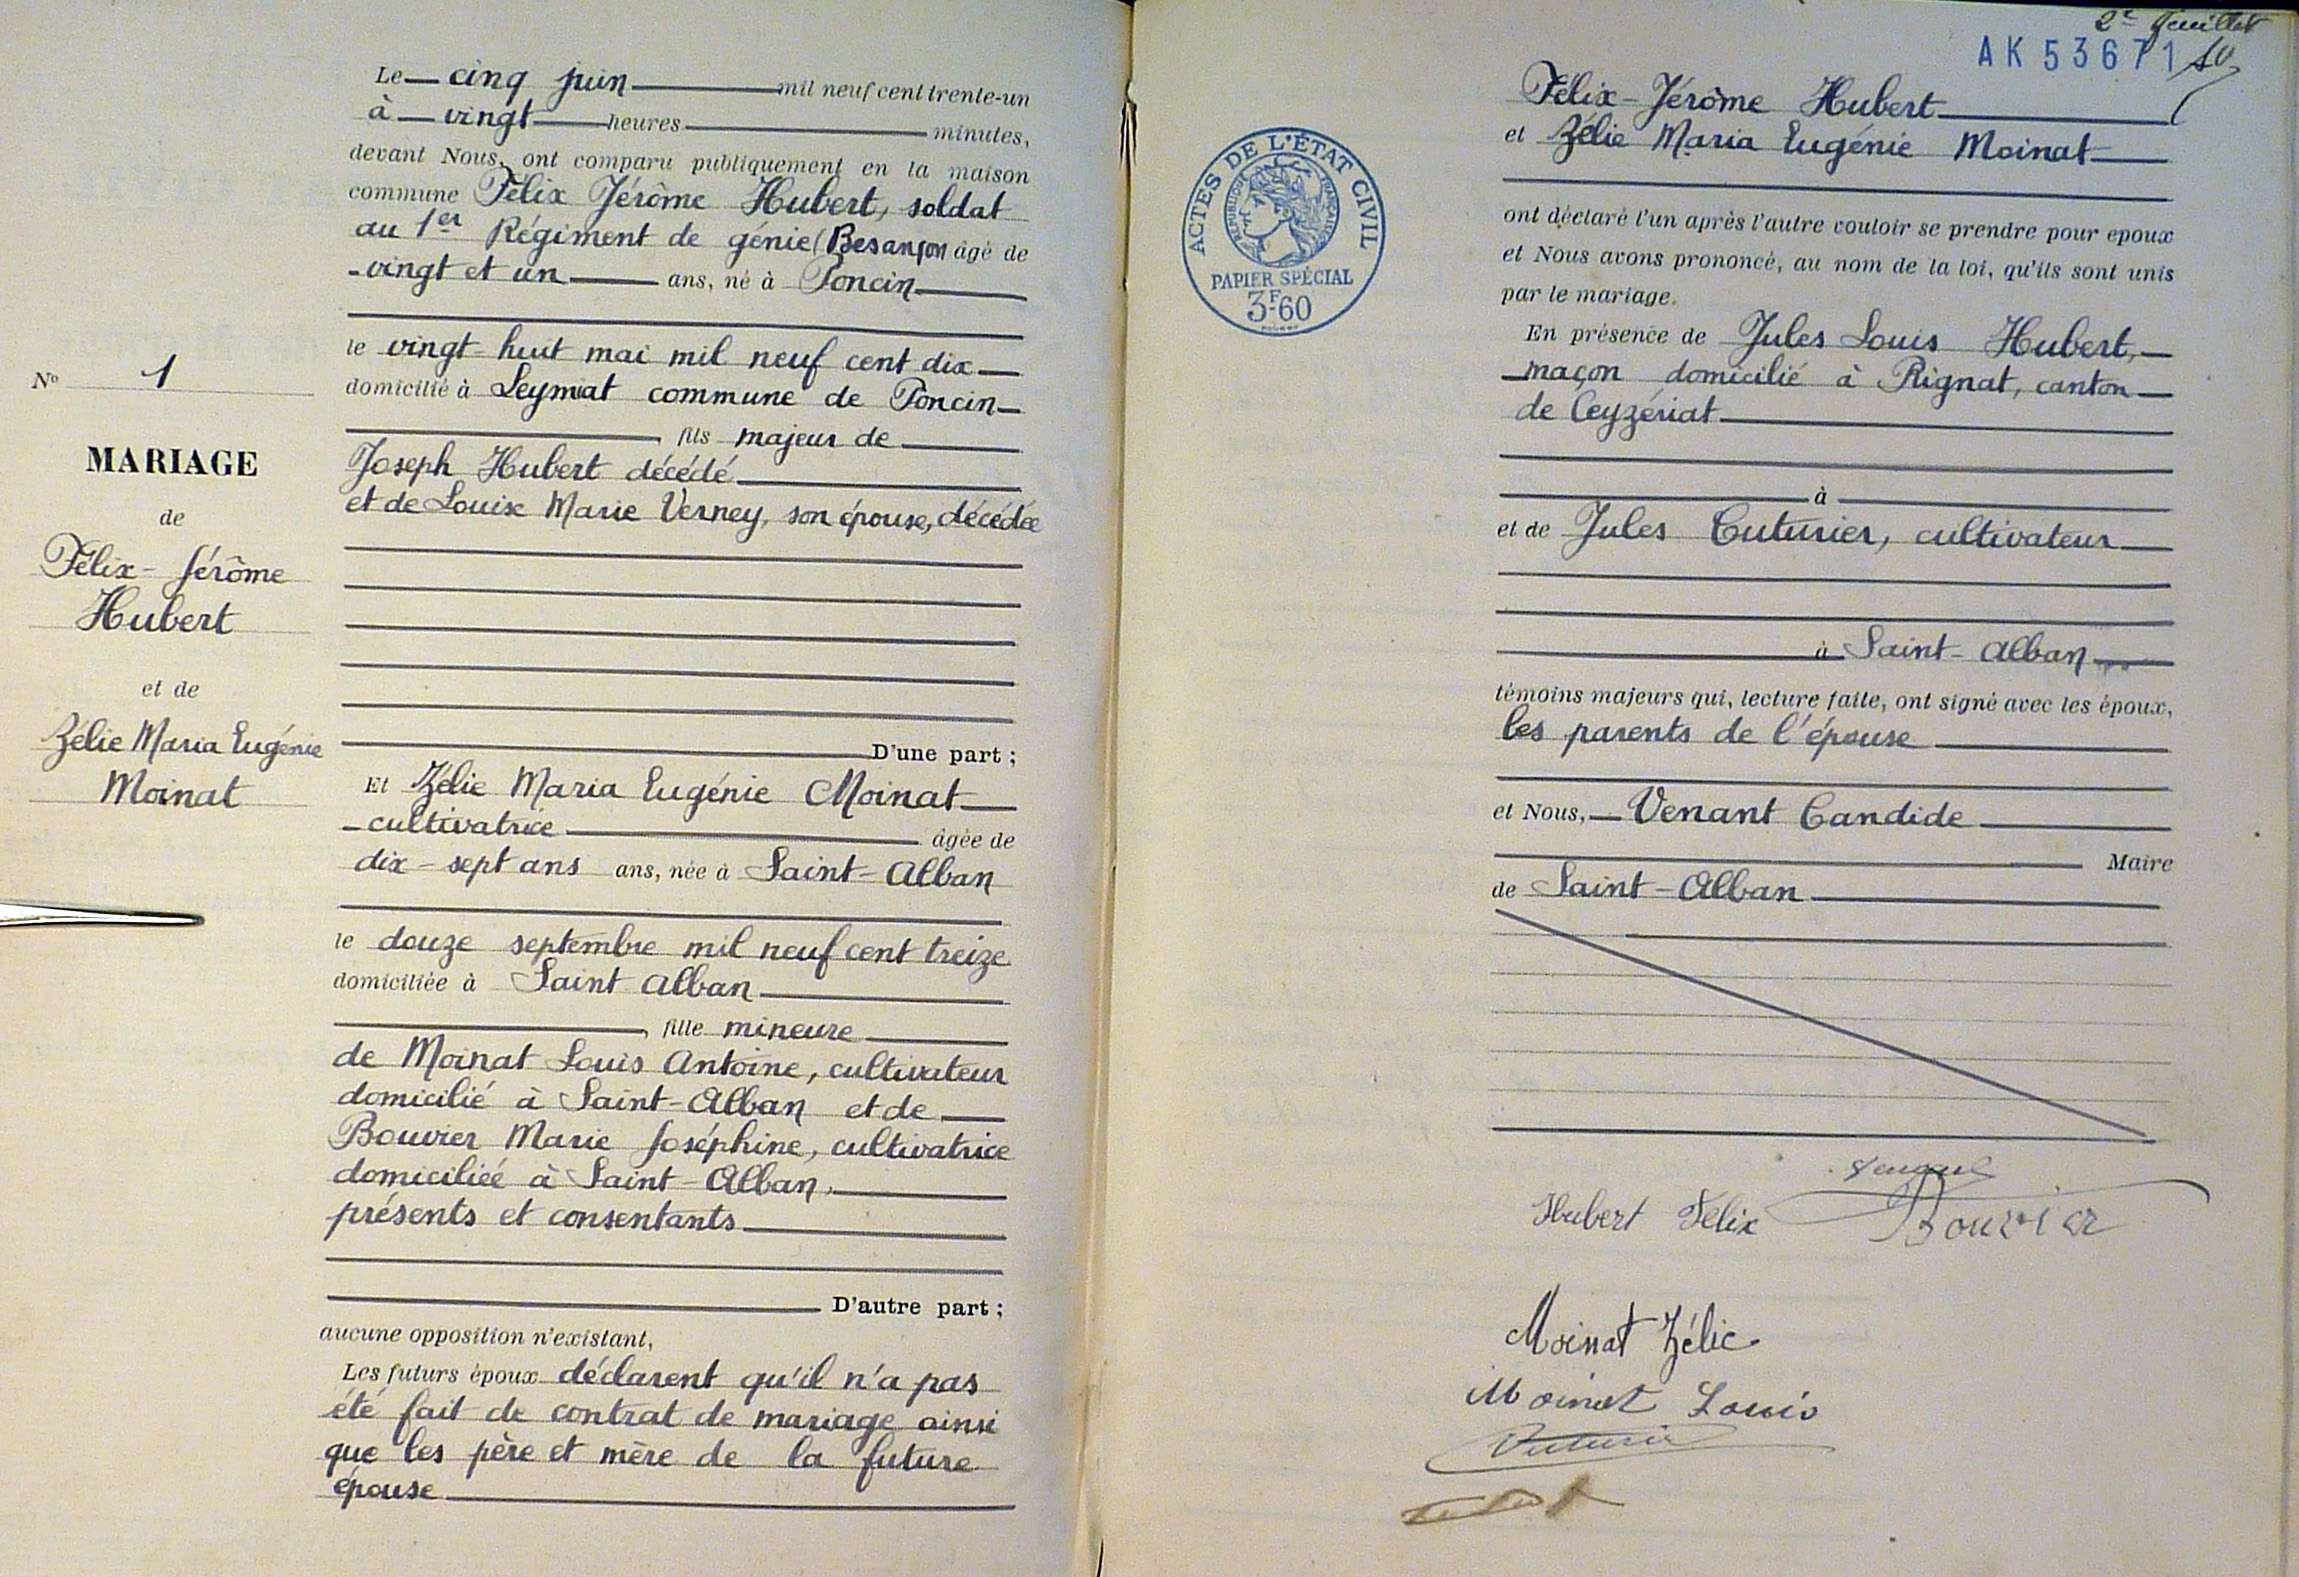 Le cinq juin mil neuf cent trente-un
à vingt heures minutes,
devant Nous, ont comparu publiquement en la maison
commune Félix Jérôme Hubert, soldat
au 1er Régiment de génie (Besançon âgé de
vingt et un ans, né à Poncin
le vingt-huit mai mil neuf cent dix
domicilié à Leymiat commune de Poncin
, fils majeur de
Joseph Hubert décédé
et de Louise Marie Verney, son épouse, décédée
D'une part ;
Et Zélie Maria Eugénie Moinat
cultivatrice âgée de
dix-sept ans ans, née à Saint-Alban
le douze septembre mil neuf cent treize
domiciliée à Saint Alban
, fille mineure
de Moinat Louis Antoine, cultivateur
domicilié à Saint-Alban et de
Bouvier Marie Joséphine, cultivatrice
domiciliée à Saint-Alban,
présents et consentants
D'autre part ;
aucune opposition n'existant,
Les futurs époux déclarent qu'il n'a pas
été fait de contrat de mariage ainsi
que les père et mère de la future
épouse
No 1
MARIAGE
de
Félix-Jérôme
Hubert
et de
Zélie Maria Eugénie
Moinat
2e feuillet
AK 53671 10
Félix-Jérôme Hubert
et Zélie Maria Eugénie Moinat
ont déclaré l'un après l'autre vouloir se prendre pour epoux
et Nous avons prononcé, au nom de la loi, qu'ils sont unis
par le mariage.
En présence de Jules Louis Hubert,
maçon domicilié à Rignat, canton
de Ceyzériat
à
et de Jules Cuturier, cultivateur
à Saint-Alban
témoins majeurs qui, lecture faite, ont signé avec les époux,
les parents de l'épouse
et Nous, Venant Candide
Maire
de Saint-Alban
ACTES DE L'ÉTAT CIVIL
RÉPUBLIQUE FRANÇAISE
PAPIER SPÉCIAL
3F-60
Hubert Félix Bouvier
Moinat Zélie
Moinat Louis
Cuturier